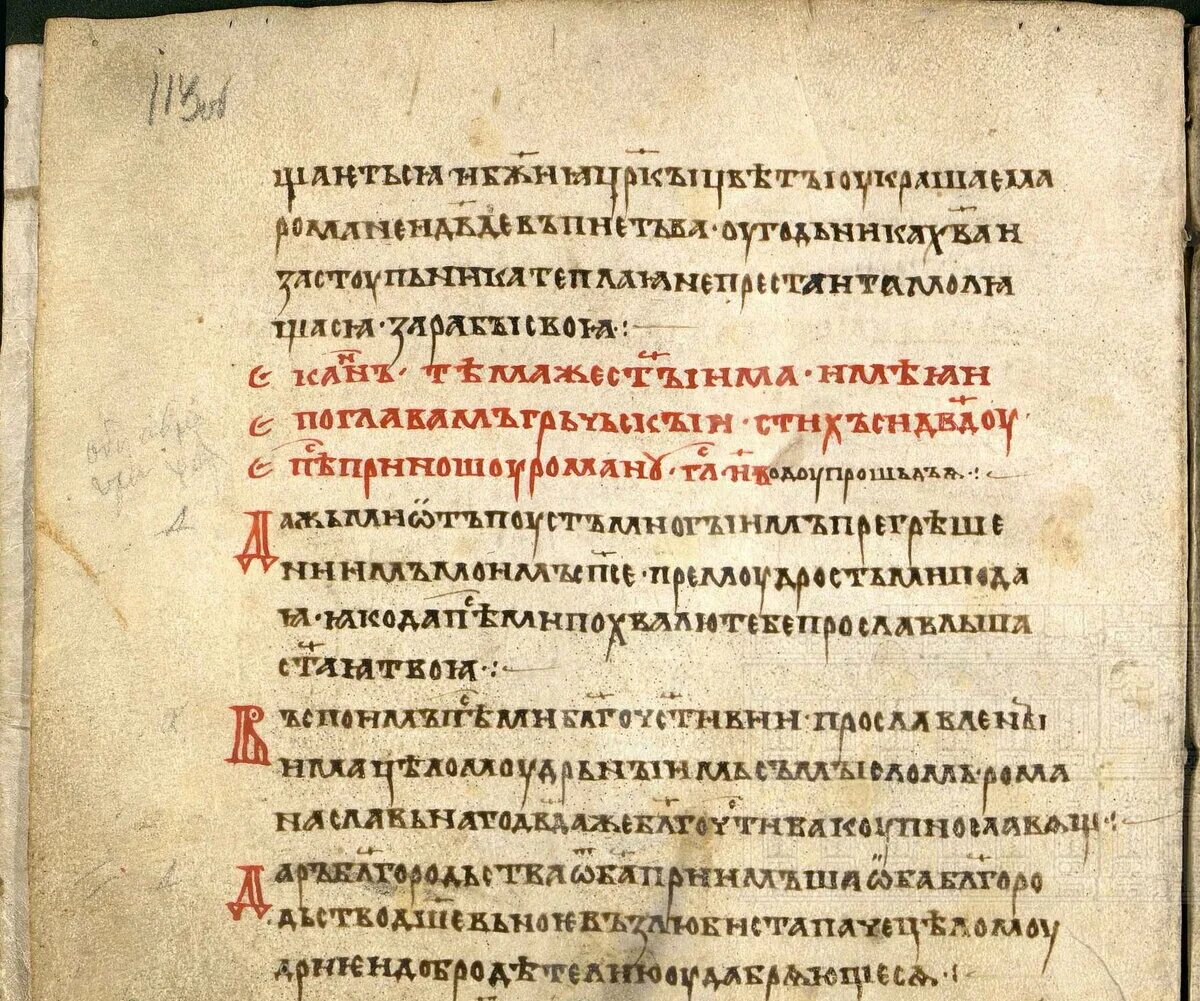 113об
щаѥтьсѧ и бж҃иꙗ цр҃кы цвѣтъı оукрашаема
романе и дв҃де въпиета ва · оугодьника хв҃а и
застоупьника теплаꙗ непрестаита молѧ
щасѧ · за рабъı своꙗ ·:
е канⷩ҇ъ · тѣмаже ст҃ъıима · имѣꙗи
е по главамъ грьчьскъıи · стихъ си дв҃доу
е пⷭ҇ѣ приношоу романоу · гл҃а · н҃ водоу прошьдъѧ ·:
Дажь ми ѿтъпоустъ многъıимъ прегрѣше
ниимъ моимъ сп҃се · премоудрость ми пода
ꙗ · ꙗко да пⷭ҇ѣми похвалю тебе прославльша
ст҃аꙗ твоꙗ ·:
Въспоимъ пⷭ҇ѣми бл҃гочⷭ҇тивии · прославленъı
има цѣломоудрьнъıимь съмъıсломь · рома
на славьна го дв҃да же бл҃гочⷭ҇тива коупно славѧщ ·:
Даръ бл҃городьства ѡба приимъша ѡба бл҃горо
дьство дш҃евьноѥ възлюбиста паче цѣломоу
дриѥ и добродѣтелию оудабрѧющесѧ ·: